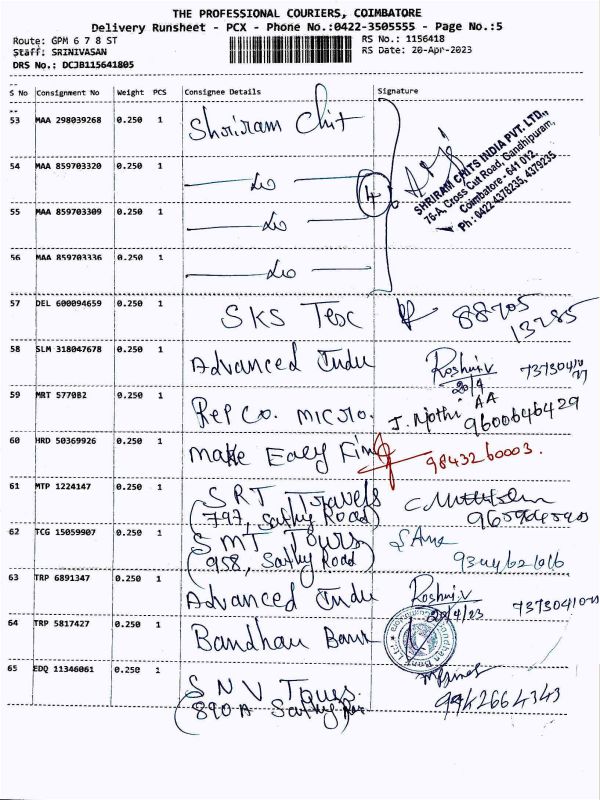 THE PROFESSIONAL COURIERS, COIMBATORE
Delivery Runsheet - PCX - Phone No.:0422-3505555 - Page No.:5
Route: GPM 6 7 8 ST RS No.: 1156418
Staff: SRINIVASAN RS Date: 20-Apr-2023
DRS No.: DCJB115641805
S No Consignment No Weight PCS Consignee Details Signature
53 MAA 298039268 0.250 1 Shriram Chit
SHRIRAM CHITS INDIA PVT. LTD.,
76-A, Cross Cut Road, Gandhipuram,
Coimbatore - 641 012.
Ph : 0422-4378235, 4379235
54 MAA 859703320 0.250 1 Do 4
55 MAA 859703309 0.250 1 Do
56 MAA 859703336 0.250 1 Do
57 DEL 600094659 0.250 1 SKS Tex 88705
13285
58 SLM 318047678 0.250 1 Advanced Indu Roshni.V
20/4
59 MRT 577082 0.250 1 Repco. micro. J. Nothi AA
9600646429
60 HRD 50369926 0.250 1 Make Easy Fin 9843260003.
61 MTP 1224147 0.250 1 SRT Travels
(797, Sathy Road)
62 TCG 15059907 0.250 1 SMT Tours
(958, Sathy Road)
63 TRP 6891347 0.250 1 Advanced Indu Roshni.V
20/4/23
64 TRP 5817427 0.250 1 Bandhan Bank
65 EDQ 11346061 0.250 1 SNV Tours
(890A Sathy 9942664343